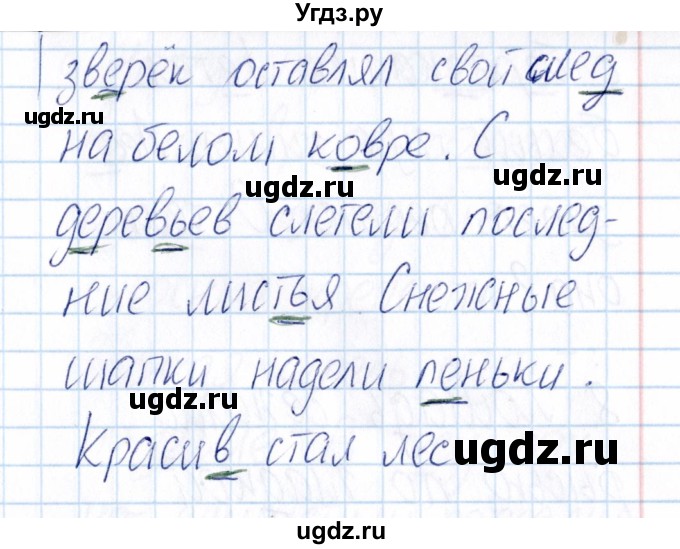 Угдз.ру
зверёк оставлял свой след
ugdz.ru
ugdz.ru
на белом ковре. С
ugdz.ru
ugdz.ru
деревьев слетели послед-
ние листья Снежные
шапки надели пеньки.
ugdz.ru
Красив стал лес
ugdz.ru
ugdz.ru